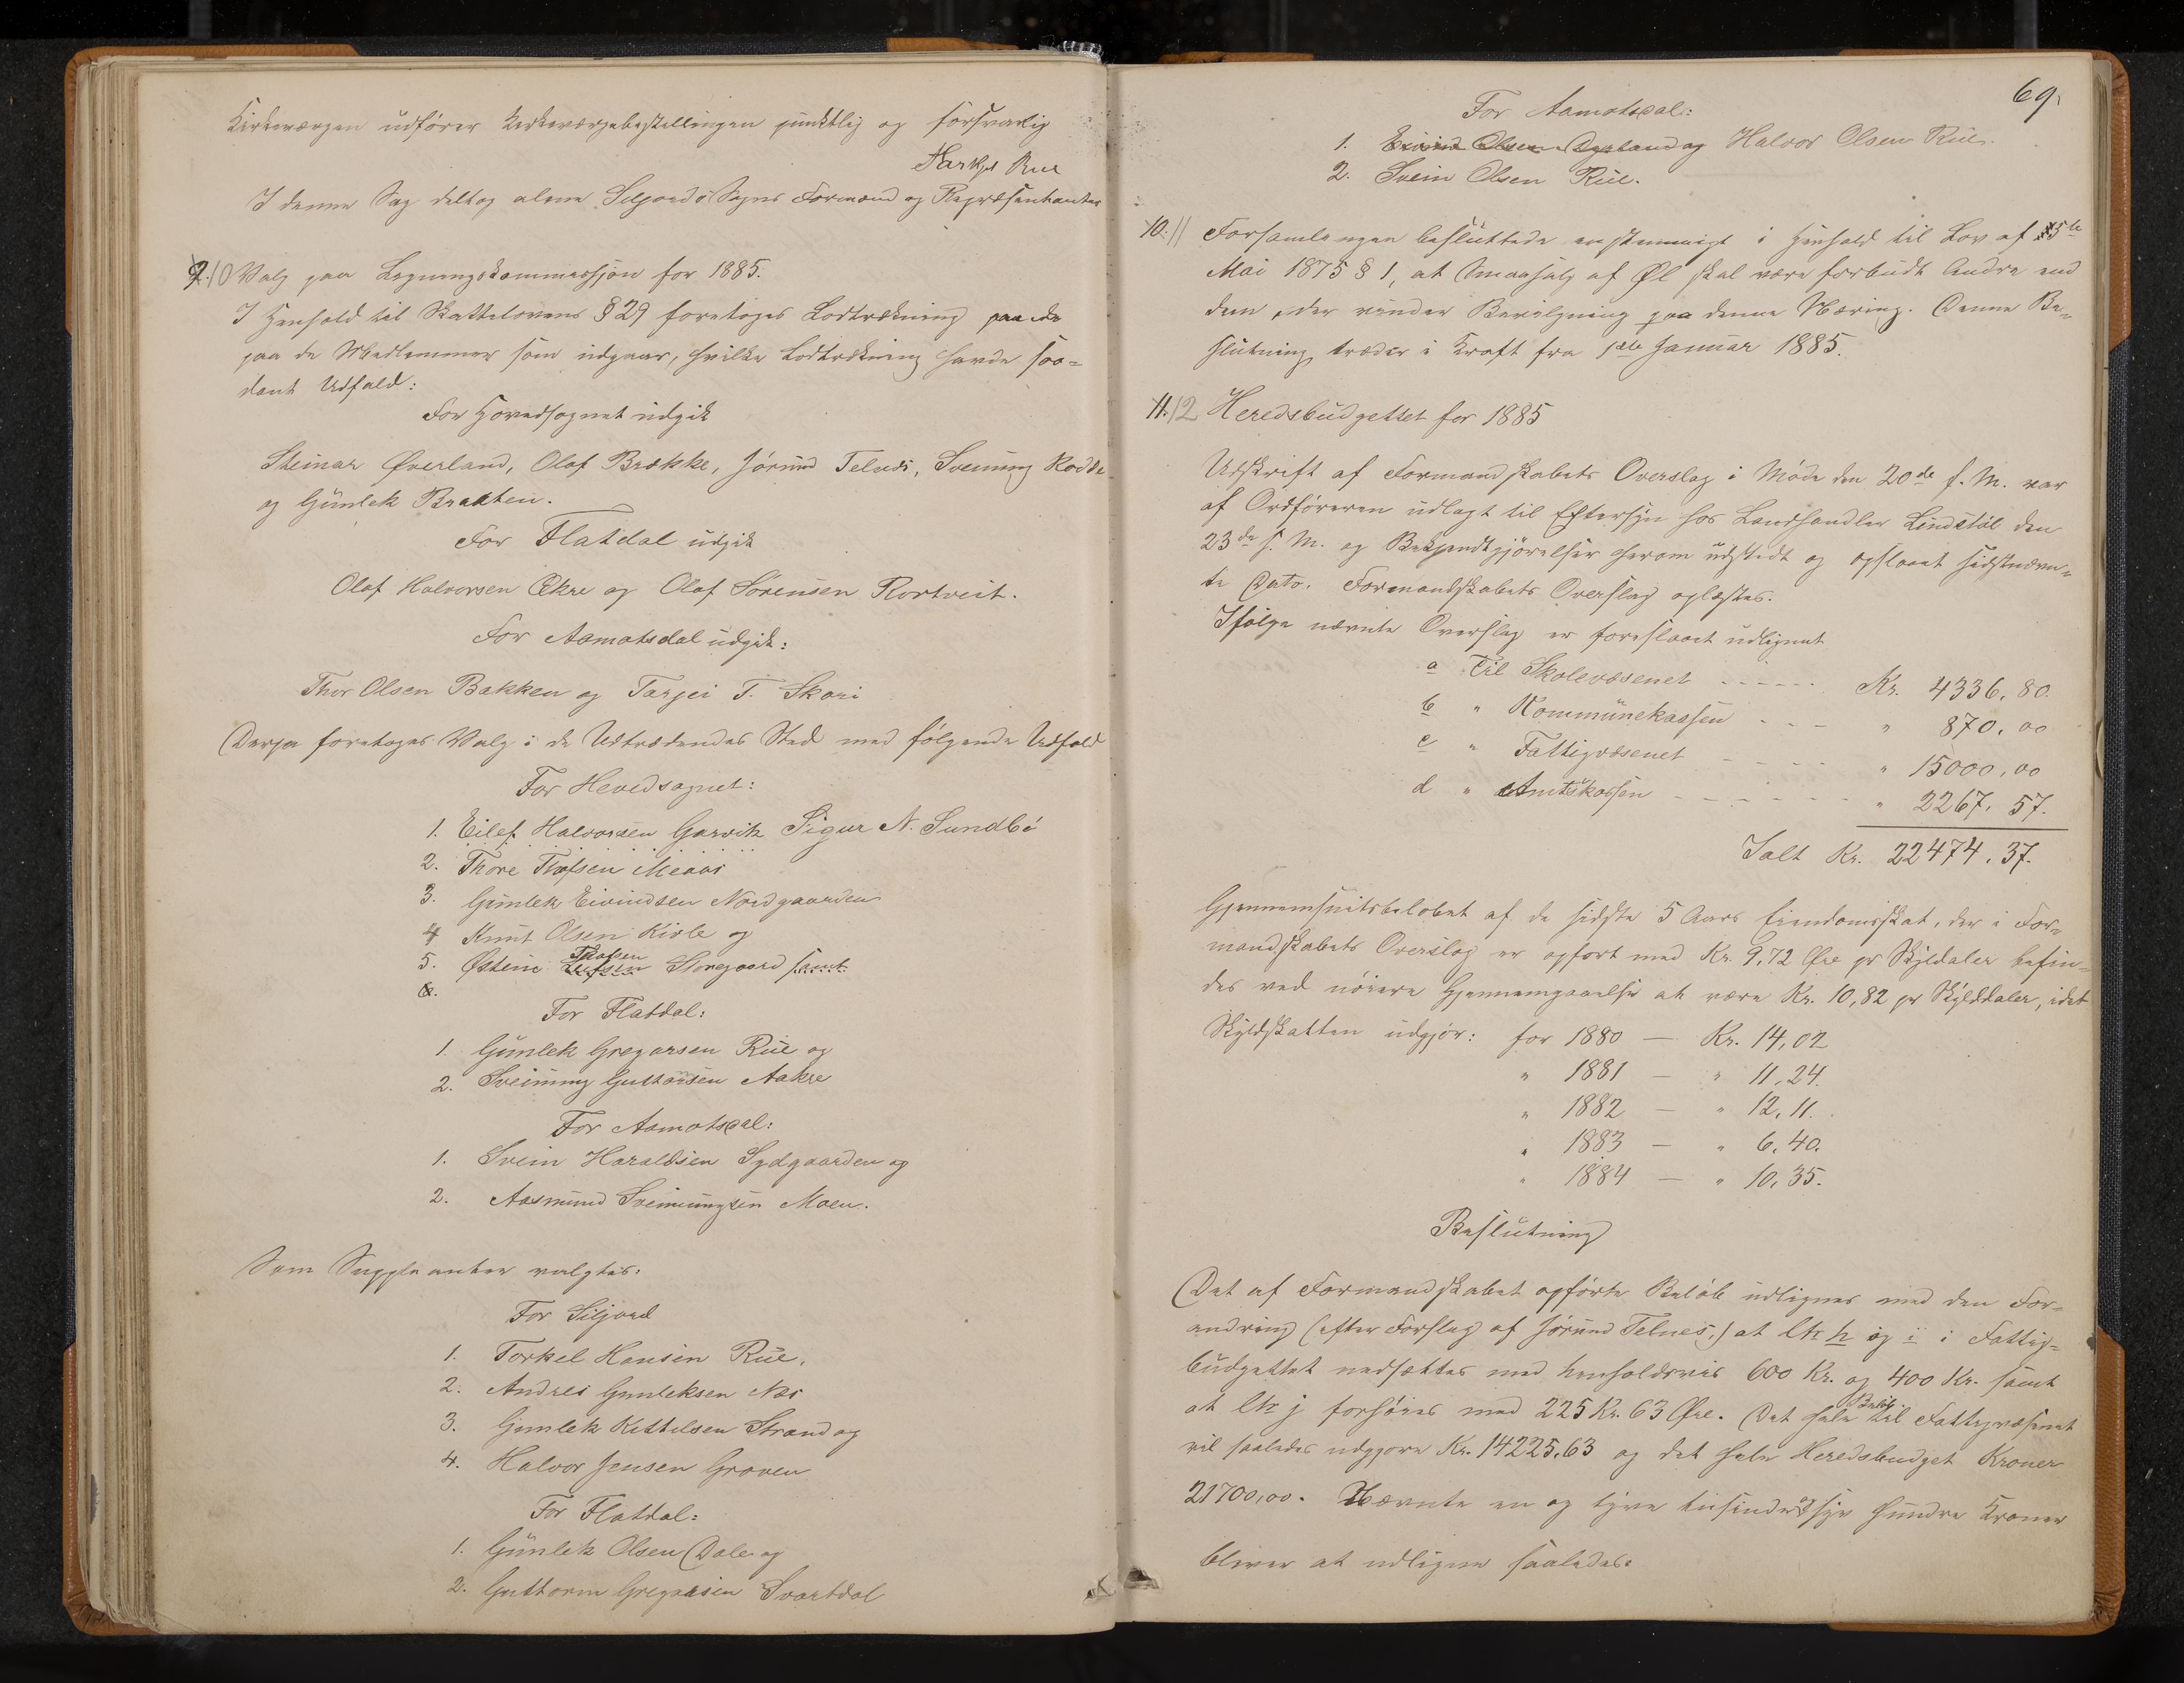 Kirkeværgen udfører Kirkeværgebestillingen punktlig og forsvarlig
Tarkjel Rue
I denne Sag deltog alene Seljords Sogns Formænd og Repræsentanter
10 Valg paa Ligningskommissjon for 1885.
I Henhold til Skattelovens § 29 foretoges Lodtrækning paa de
paa de Medlemmer som udgaar, hvilke Lodtrækning havde saa-
dant Udfald:
For Hovedsognet udgik
Steinar Øverland, Olaf Brække, Jørund Telnæs, Sveinung Rodde
og Gunlek Braaten.
For Flatdal udgik
Olaf Halvorsen Ækre og Olaf Sørensen Rortveit.
For Aamotsdal udgik:
Thor Olsen Bakken og Tarjei T. Skori
Derpa foretoges Valg i de Udtrædendes Sted med følgende Udfald
For Hovedsognet:
1. Eilef Halvorsen Garvik Sigur N. Sundbö
2. Thore Thofsen Meaas
3. Gunlek Eivindsen Nordgaarden
4 Knut Olsen Kivle og
5. Østein Thofsen Storegaard samt
6.
For Flatdal:
1. Gunlek Gregarsen Rue og
2. Sveinung Guttormsen Aakre
For Aamotsdal:
1. Svein Haraldsen Sydgaarden og
2. Aasmund Sveinungsen Moen.
Som Suppleanter valgtes:
For Siljord
1. Torkel Hansen Rue,
2. Andres Gunleksen Næs
3. Gunlek Kittilsen Strand og
4. Halvor Jensen Groven
For Flatdal:
1. Gunlek Olsen Dale og
2. Guttorm Gregarsen Svartdal
69.
For Aamotsdal:
1. Eivind Olsen Dyrland og Halvor Olsen Rue.
2. Svein Olsen Rue.
10. 11 Forsamlingen besluttede enstemmigt i Henhold til Lov af 3die
Mai 1875 § 1, at Smaasalg af Øl skal være forbudt Andre end
dem, der vinder Bevilgning paa denne Næring. Denne Be-
slutning træder i Kraft fra 1ste Januar 1885.
11. 12 Heredsbudgettet for 1885
Udskrift af Formandskabets Overslag i Møde den 20de f. M. var
af Ordføreren udlagt til Eftersyn hos Landhandler Lindstøl den
23de s. M. og Bekjendtgjørelser herom udstedt og opslaaet sidstnævn-
te Dato. Formandskabets Overslag oplæstes.
Ifølge nævnte Overslag er foreslaaet udlignet
a Til Skolevæsenet ----- Kr. 4336,80.
b " Kommunekassen - - - " 870,00
c " Fattigvæsenet - - - - " 15000,00
d " Amtskassen - - - - - - " 2267,57.
Ialt Kr. 22474,37.
Gjennemsnitsbeløbet af de sidste 5 Aars Eiendomsskat, der i For-
mandskabets Overslag er opført med Kr. 9,72 Øre pr Skyldaler befin-
des ved nøiere Gjennemgaaelse at være Kr. 10,82 pr Skylddaler, idet
Skyldskatten udgjør: for 1880 — Kr. 14,02
" 1881 — " 11,24.
" 1882 — " 12,11.
" 1883 — " 6,40.
" 1884 — " 10,35.
Beslutning
Det af Formandskabet opførte Beløb udlignes med den For-
andring (efter Forslag af Jørund Telnes,) at Ltr h og i i Fattig-
budgettet nedsættes med henholdsvis 600 Kr. og 400 Kr. samt
at Ltr j forhøies med 225 Kr. 63 Øre. Det hele Beløb til Fattigvæsenet
vil saaledes udgjøre Kr. 14225,63 og det hele Heredsbudget Kroner
21700,00. Nævnte en og tyve tusinde og syv hundre Kroner
bliver at udligne saaledes: